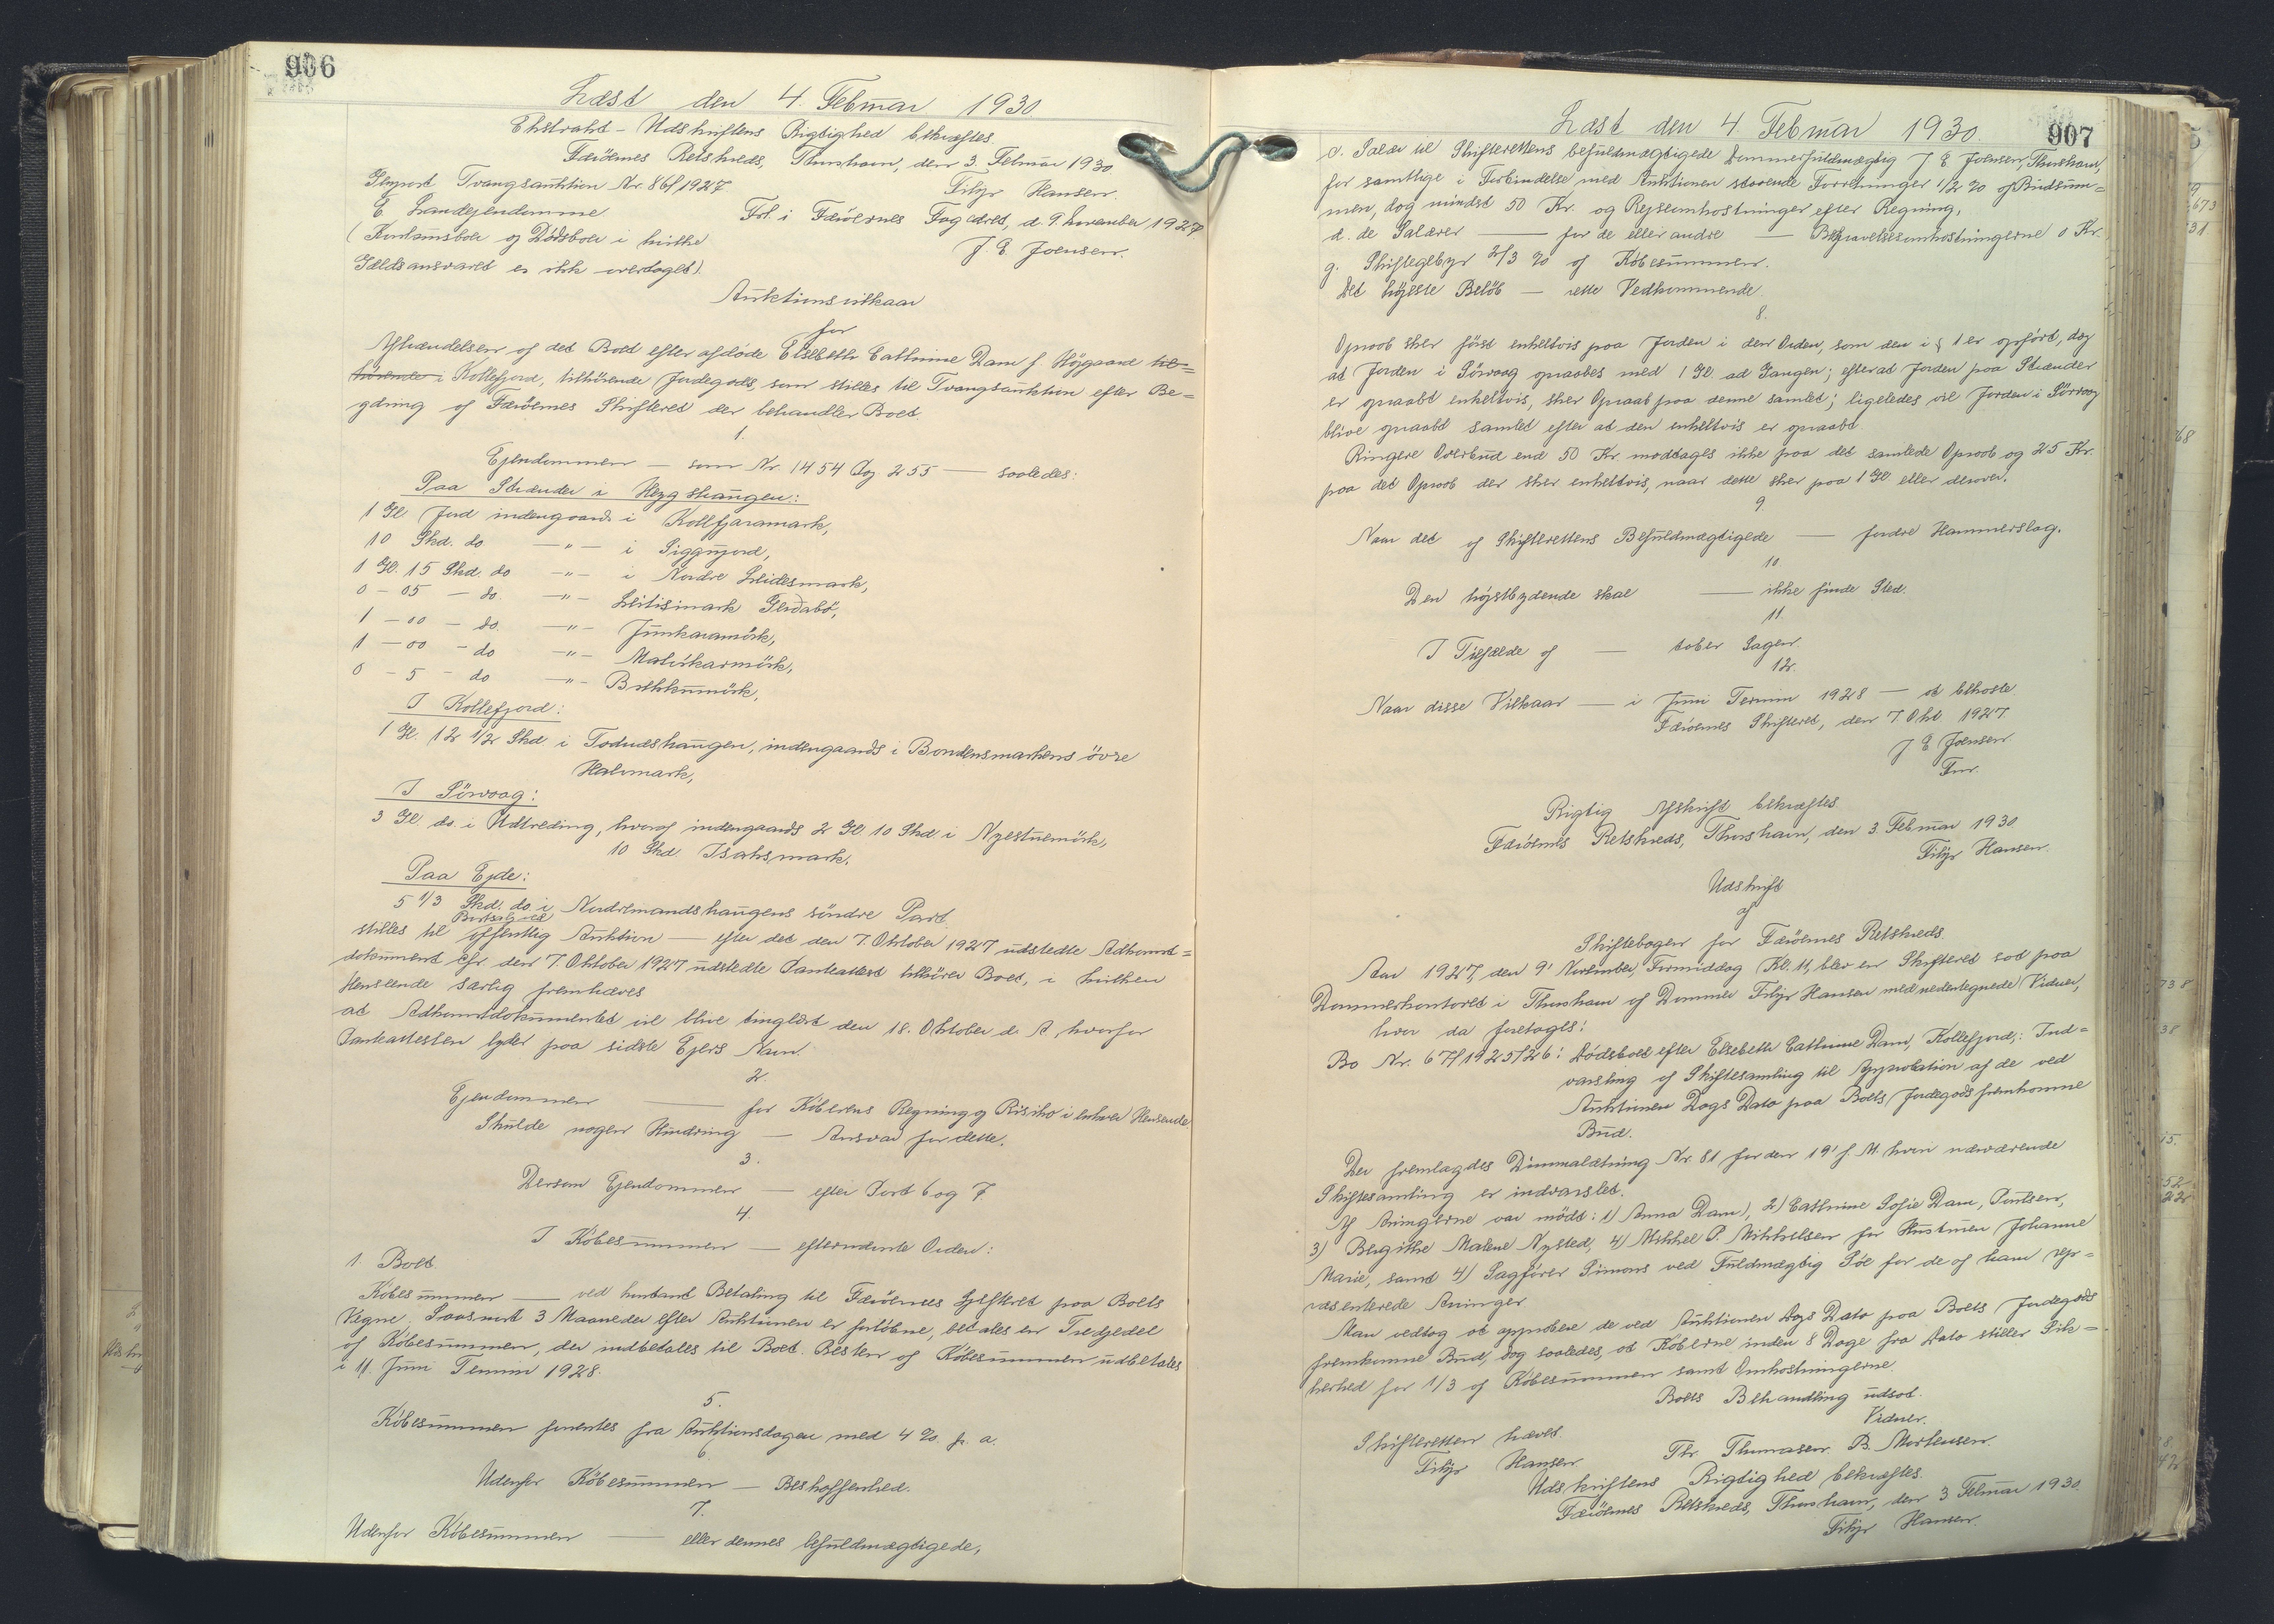 906
Læst den 4. Februar 1930
Ekstrakt-Udskriftens Rigtighed bekræftes.
Færøernes Retskreds, Thorshavn, den 3. Februar 1930
Filip Hansen.
Tvangsauktion Nr. 86/1927
C Landejendomme
Frl. i Færøernes Fogedret, d. 9. November 1927
(Konkursboer og Dødsboer i hvilke
J. E. Joensen.
Gældsansvaret er ikke overtaget).
Auktionsvilkaar
for
Afhændelsen af det Boet efter afdøde Elsebeth Cathrine Dam f Højgaard til=
hørende i Kollefjord, tilhørende Jordegods, som stilles til Tvangsauktion efter Be=
gæring af Færøernes Skifteret der behandler Boet.
1.
Ejendommen — som Nr. 1454 Og 255 — saaledes:
Paa Strænder i Heyg Haugen:
1 Gl Jord indengaards i Kollfjaramark,
10 Skd. do —"— i Siggujord,
1 Gl. 15 Skd. do —"— i Nordre Leidesmark,
0 - 05 — do. —"— Leitismark Gerdabø,
1 - 00 - do. —"— Junkaramörk,
1 - 00 - do —"—
0 - 5 - do —"—
I Kollefjord:
1 Gl. 12 1/2 Skd i Todneshaugen, indengaards i Bondensmarkens övre
Halvmark,
I Sörvaag:
3 Gl do. i Udtreding, hvoraf indengaards 2 Gl 10 Skd i Nyestuemörk,
10 Skd. Isaksmark.
Paa Ejde:
5 1/3 Skd. do. i Nordremandshaugens søndre Part.
Bortsalg ved
stilles til offentlig Auktion — efter det den 7. Oktober 1927 udstedte Adkomst=
dokument efr den 7. Oktober 1927 udstedte Panteattest tilhører Boet, i hvilken
Henseende særlig fremhæves
at Adkomstdokumentet vil blive tinglæst den 18. Oktober d. A, hvorfor
Panteattesten lyder paa sidste Ejers Navn.
2.
Ejendommen — for Köberens Regning og Risiko i enhver Henseende
Skulde nogen Hindring — Ansvar for dette.
3.
Dersom Ejendommen — efter Post 6 og 7.
4.
I Köbesummen — efternævnte Orden:
1. Boet.
Köbesummen — ved kontant Betaling til Færøernes Skifteret paa Boets
Vegne. Saasnart 3 Maaneder efter Auktionen er forløbne, betales en Tredjedel
af Købesummen, der indbetales til Boet. Resten af Købesummen udbetales
i 11. Juni Termin 1928.
5.
Købesummen forrentes fra Auktionsdagen med 4 % p. a.
6
Udenfor Købesummen — Beskaffenhed.
7.
Udenfor Købesummen — eller dennes befuldmægtigede,
907
Læst den 4. Februar 1930
c. Salær til Skifterettens befuldmægtigede Dommerfuldmægtig J E Joensen, Thorshavn,
for samtlige i Forbindelse med Auktionen staaende Forretninger 1/2 % af Budsum=
men, dog mindst 50 Kr. og Rejseomkostninger efter Regning,
d. de Salærer — for de eller andre — Begravelsesomkostningerne 0 Kr.
g. Skiftegebyr 2/3 % af Købesummen.
Det højeste Beløb — rette Vedkommende.
8.
Opraab sker først enkeltvis paa Jorden i den Orden, som den i § 1 er opført, dog
at Jorden i Sörvaag opraabes med 1 Gl. ad Gangen; efterat Jorden paa Strænder
er opraabt enkeltvis, sker Opraab paa denne samlet; ligeledes vil Jorden i Sörvaag
blive opraabt samlet efter at den enkeltvis er opraabt.
Ringere Overbud end 50 Kr. modtages ikke paa det samlede Opraab og 25 Kr.
paa det Opraab der sker enkeltvis, naar dette sker paa 1 Gl. eller derover.
9.
Naar det af Skifterettens Befuldmægtigede — fordre Hammerslag.
10.
Den højstbydende skal — ikke finde Sted.
11.
I Tilfælde af — taber Sagen.
12.
Naar disse Vilkaar — i Juni Termin 1928 — at bekoste.
Færøernes Skifteret, den 7. Okt 1927.
J E Joensen
Fm.
Rigtig Afskrift bekræftes
Færøernes Retskreds, Thorshavn, den 3. Februar 1930
Filip Hansen.
Udskrift
af
Skiftebogen for Færøernes Retskreds.
Aar 1927, den 9' November, Formiddag Kl. 11, blev en Skifteret sat paa
Dommerkontoret i Thorshavn af Dommer Filip Hansen med undertegnede Vidner,
hvor da foretoges:
Bo Nr. 67/1925/26: Dødsboet efter Elsebeth Cathrine Dam, Kollefjord,: Ind=
varsling af Skiftesamling til Approbation af de ved
Auktionen Dags Dato paa Boets Jordegods fremkomne
Bud.
Der fremlagdes Dimmalætning Nr. 81 for den 19' f. M. hvori nærværende
Skiftesamling er indvarslet.
Af Arvingerne var mødt: 1) Anna Dam), 2) Cathrine Sofie Dam, Poulsen,
3) Bergithe Malene Nysted, 4) Mikkel P. Mikkelsen for Hustruen Johanne
Marie, samt 4) Sagfører Simons ved Fuldmægtig Söe for de af ham rep=
ræsenterede Arvinger
Man vedtog at approbere de ved Auktionen Dags Dato paa Boets Jordegods
fremkomne Bud, dog saaledes, at Køberne inden 8 Dage fra Dato stiller Sik=
kerhed for 1/3 af Købesummen samt Omkostningerne.
Boets Behandling udsat.
Skifteretten hævet.
Vidner.
Filip Hansen.
Thr. Thomasen. B. Mortensen.
Udskriftens Rigtighed bekræftes.
Færøernes Retskreds, Thorshavn, den 3 Februar 1930.
Filip Hansen.